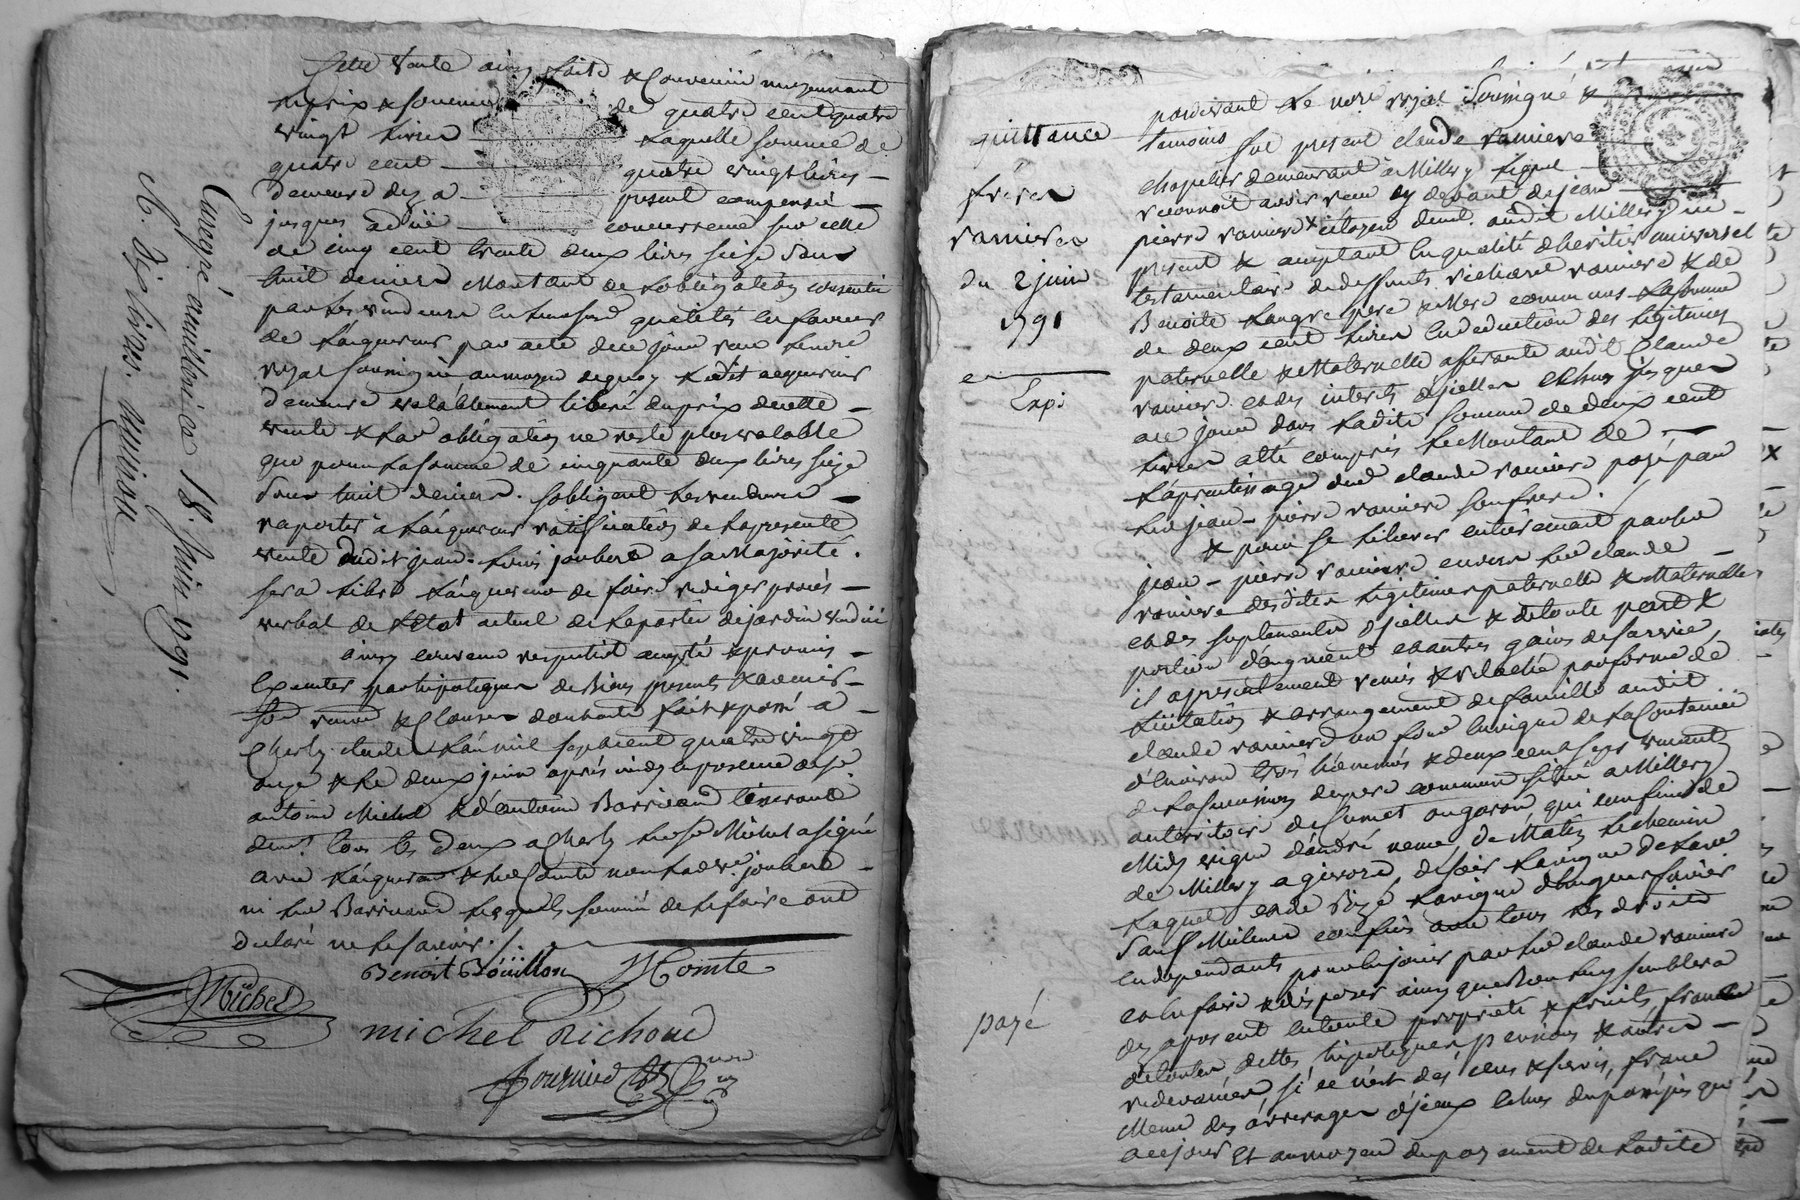 Cette vente ainsy faite & convenüe moyennant
le prix & somme de quatre cent quatre
vingt livres laquelle somme de
quatre cent quatre vingt livres
demeure dez a present compensée
jusques a düe concurrence sur celle
de cinq cent trente deux livres seize sous
huit deniers montant de l'obligation consentie
par les vendeurs en faveur
de l'acquereur par acte de ce jour reçu
notre royal soussigné au moyen de quoy ledit acquereur
demeure valablement liberé du prix de cette
vente & l'obligation ne reste plus valable
que pour la somme de cinquante deux livres seize
sous huit deniers. s'obligent les vendeurs
raporter a l'acquereur ratiffication de la presente
vente dudit jean-louis joubert a sa majorité.
sera libre l'acquereur de faire rediger procés
verbal de l'état actuel de la partie de jardin vendüe
ainsy convenu respectivt accepté & promis
executer par hipoteques de biens presents & avenir
sous renon & clauses dont acte fait & passé a
Charly etude l'an mil sept cent quatre vingt
onze & le deux juin aprés midy en presence de sr
antoine Michel & d'antoine Barricaud
demt tous les deux a Charly le sr Michel a signé
avec l'acquereur & non lad. ve joubert
ni led Barricaud lesquels sommés de le faire ont
declaré ne le savoir ./.
Benoit Boüillon JComte
Michel
michel Richoud
Fournier
Enregré a millery ce 18. Juin 1791.
R. dix livres. munion
quittance
frères
ramiere
du 2 juin
1791
Expé
payé
pardevant le notre royal soussigné &
temoins fut present claude ramiere
chapelier demeurant a Millery lequel
reconnoit avoir reçu cy devant de jean
pierre ramiere citoyen demt audit Millery ici
present & acceptant en qualité d'heritier universel
testamentaire de deffunts ramiere & de
Benoite Laugre pere & mere communs la somme
de deux cent livres en deduction des legitimes
paternelle & maternelle afferante audit Claude
ramiere et des interets d'jcelles echus jusques
a ce jour dans ladite somme de deux cent
livres a été compris le montant de
l'aprentissage dud claude ramiere payé par
led jean-pierre ramiere son frere.
& pour se liberer entierement par led
jean-pierre ramiere envers led claude
ramiere desdites legitimes paternelle & maternelle
et des suplements d'jcelles & de toute part &
portion d'augment et autres gains de survie,
il a presentement remis & relaché par forme de
licitation & arrangement de famille audit
claude ramiere un fond en vigne de la contenüe
d'environ trois hommées & deux ceps venant
de la succession de pere commun situé a Millery
au territoire de sumet ou garon qui confine de
Midy vigne d'andré neme, de Matin le chemin
de Millery a givord, de soir la vigne de
laquel et de Bize la vigne d'hugues favier
sauf meilleurs confins avec tous les droits
en dependants pour en jouir par led claude ramiere
en faire & disposer ainsy que bon luy semblera
dez a present en toute proprieté & fruits franc
de toutes dettes hipoteques pensions & autres
redevances, si ce n'est des cens & servis, franc
meme des arrerages d'jceux echus du passé jusqu'
a ce jour Et au moyen du payement de ladite